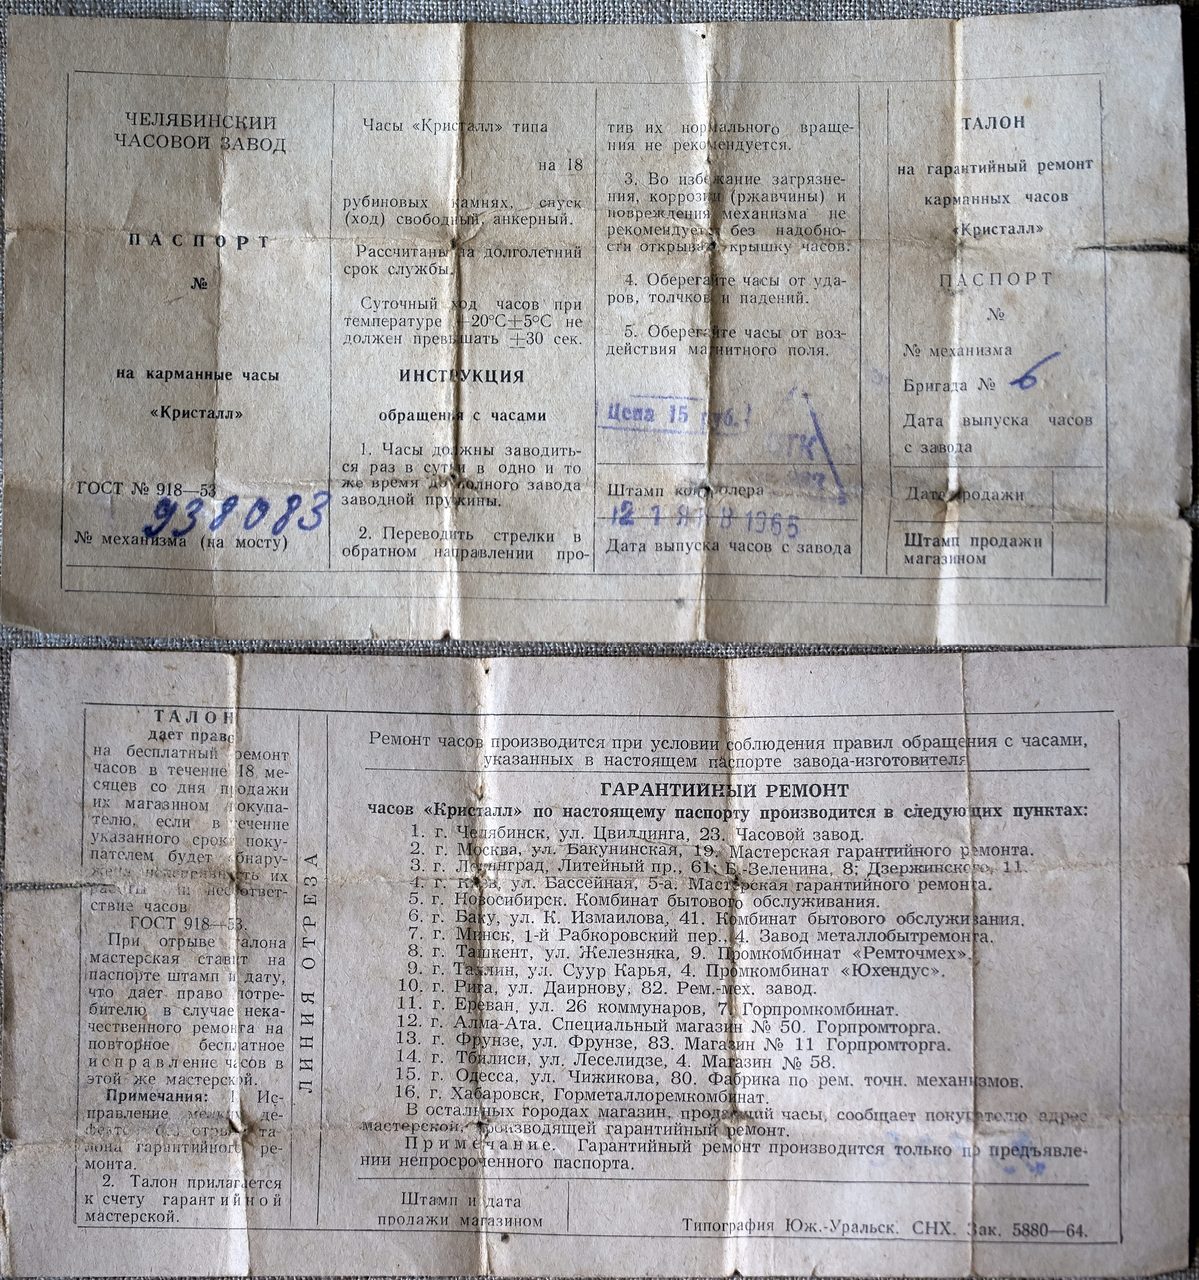 ЧЕЛЯБИНСКИЙ
ЧАСОВОЙ ЗАВОД
ПАСПОРТ
№
на карманные часы
«Кристалл»
ГОСТ № 918—53
938083
№ механизма (на мосту)
Часы «Кристалл» типа
на 18
рубиновых камнях, спуск
(ход) свободный, анкерный.
Рассчитаны на долголетний
срок службы.
Суточный ход часов при
температуре +20°С±5°С не
должен превышать ±30 сек.
ИНСТРУКЦИЯ
обращения с часами
1. Часы должны заводить-
ся раз в сутки в одно и то
же время до полного завода
заводной пружины.
2. Переводить стрелки в
обратном направлении про-
тив их нормального враще-
ния не рекомендуется.
3. Во избежание загрязне-
ния, коррозии (ржавчины) и
повреждения механизма не
рекомендуется без надобно-
сти открывать крышку часов.
4. Оберегайте часы от уда-
ров, толчков и падений.
5. Оберегайте часы от воз-
действия магнитного поля.
Цена 15 руб.
ОТК
Штамп контролера
12 1965
Дата выпуска часов с завода
ТАЛОН
на гарантийный ремонт
карманных часов
«Кристалл»
ПАСПОРТ
№
№ механизма
Бригада № 6
Дата выпуска часов
с завода
Дата продажи
Штамп продажи
магазином
ТАЛОН
дает право
на бесплатный ремонт
часов в течение 18 ме-
сяцев со дня продажи
их магазином покупа-
телю, если в течение
указанного срока поку-
пателем будет обнару-
жена неисправность их
работы или несоответ-
ствие часов
ГОСТ 918—53.
При отрыве талона
мастерская ставит на
паспорте штамп и дату,
что дает право потре-
бителю в случае нека-
чественного ремонта на
повторное бесплатное
исправление часов в
этой же мастерской.
Примечания: 1. Ис-
правление мелких де-
фектов без отрыва та-
лона гарантийного ре-
монта.
2. Талон прилагается
к счету гарантийной
мастерской.
ЛИНИЯ ОТРЕЗА
Ремонт часов производится при условии соблюдения правил обращения с часами,
указанных в настоящем паспорте завода-изготовителя
ГАРАНТИЙНЫЙ РЕМОНТ
часов «Кристалл» по настоящему паспорту производится в следующих пунктах:
1. г. Челябинск, ул. Цвиллинга, 23. Часовой завод.
2. г. Москва, ул. Бакунинская, 19. Мастерская гарантийного ремонта.
3. г. Ленинград, Литейный пр., 61; Б.-Зеленина, 8; Дзержинского, 11.
4. г. Киев, ул. Бассейная, 5-а. Мастерская гарантийного ремонта.
5. г. Новосибирск. Комбинат бытового обслуживания.
6. г. Баку, ул. К. Измаилова, 41. Комбинат бытового обслуживания.
7. г. Минск, 1-й Рабкоровский пер., 4. Завод металлобытремонта.
8. г. Ташкент, ул. Железняка, 9. Промкомбинат «Ремточмех».
9. г. Таллин, ул. Суур Карья, 4. Промкомбинат «Юхендус».
10. г. Рига, ул. Даирнову, 82. Рем.-мех. завод.
11. г. Ереван, ул. 26 коммунаров, 7. Горпромкомбинат.
12. г. Алма-Ата. Специальный магазин № 50. Горпромторга.
13. г. Фрунзе, ул. Фрунзе, 83. Магазин № 11 Горпромторга.
14. г. Тбилиси, ул. Леселидзе, 4. Магазин № 58.
15. г. Одесса, ул. Чижикова, 80. Фабрика по рем. точн. механизмов.
16. г. Хабаровск, Горметаллоремкомбинат.
В остальных городах магазин, продавший часы, сообщает покупателю адрес
мастерской, производящей гарантийный ремонт.
Примечание. Гарантийный ремонт производится только по предъявле-
нии непросроченного паспорта.
Штамп и дата
продажи магазином
Типография Юж.-Уральск. СНХ. Зак. 5880—64.